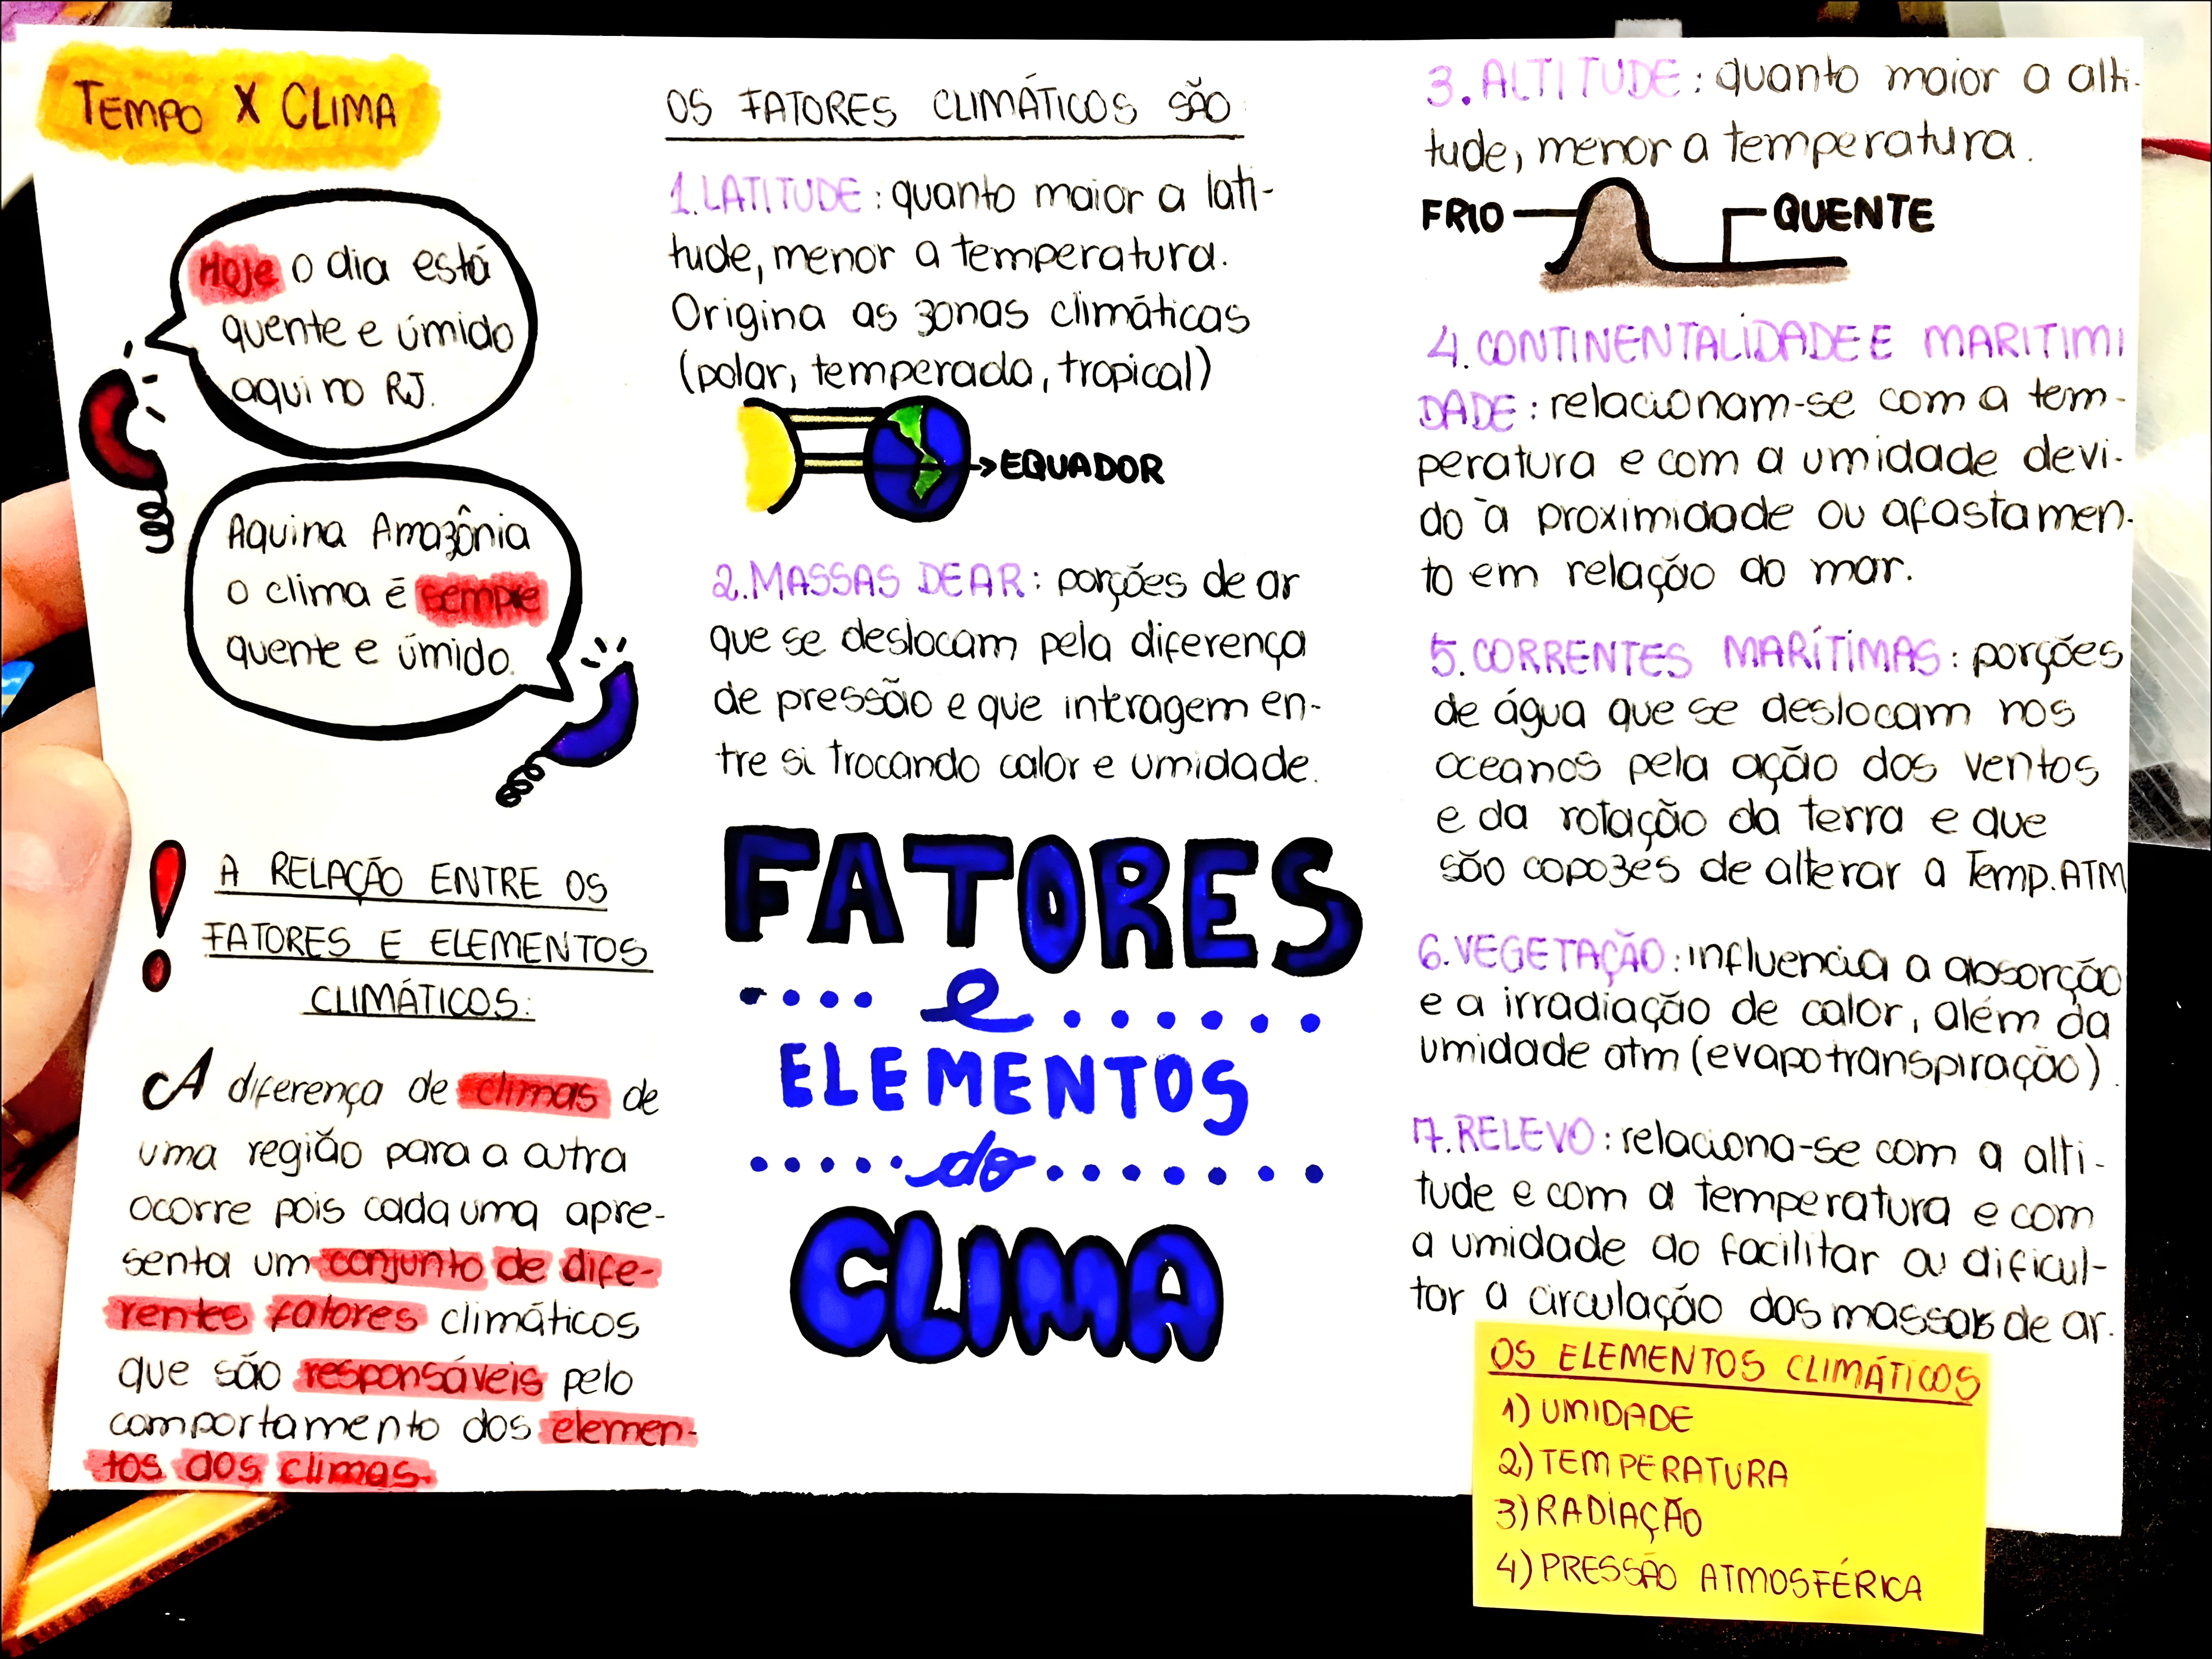 TEMPO X CLIMA
Hoje o dia está
quente e úmido
aqui no RJ.
Aqui na Amazônia
o clima é sempre
quente e úmido.
! A RELAÇÃO ENTRE OS
FATORES E ELEMENTOS
CLIMÁTICOS:
A diferença de climas de
uma região para a outra
ocorre pois cada uma apre-
senta um conjunto de dife-
rentes fatores climáticos
que são responsáveis pelo
comportamento dos elemen-
tos dos climas.
OS FATORES CLIMÁTICOS SÃO:
1. LATITUDE: quanto maior a lati-
tude, menor a temperatura.
Origina as zonas climáticas
(polar, temperada, tropical)
EQUADOR
2. MASSAS DE AR: porções de ar
que se deslocam pela diferença
de pressão e que interagem en-
tre si trocando calor e umidade.
FATORES
e
ELEMENTOS
do
CLIMA
3. ALTITUDE: quanto maior a alti-
tude, menor a temperatura.
FRIO QUENTE
4. CONTINENTALIDADE E MARITIMI
DADE: relacionam-se com a tem-
peratura e com a umidade devi-
do à proximidade ou afastamen-
to em relação ao mar.
5. CORRENTES MARÍTIMAS: porções
de água que se deslocam nos
oceanos pela ação dos ventos
e da rotação da terra e que
são capazes de alterar a Temp. ATM
6. VEGETAÇÃO: influencia a absorção
e a irradiação de calor, além da
umidade atm (evapotranspiração).
7. RELEVO: relaciona-se com a alti-
tude e com a temperatura e com
a umidade ao facilitar ou dificul-
tar a circulação das massas de ar.
OS ELEMENTOS CLIMÁTICOS
1) UMIDADE
2) TEMPERATURA
3) RADIAÇÃO
4) PRESSÃO ATMOSFÉRICA